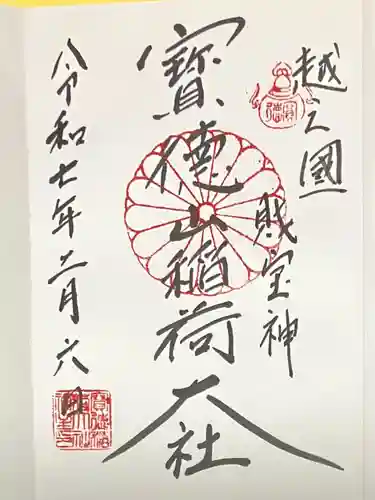 越之國
財宝神
寳德山稲荷大社
令和七年二月六日